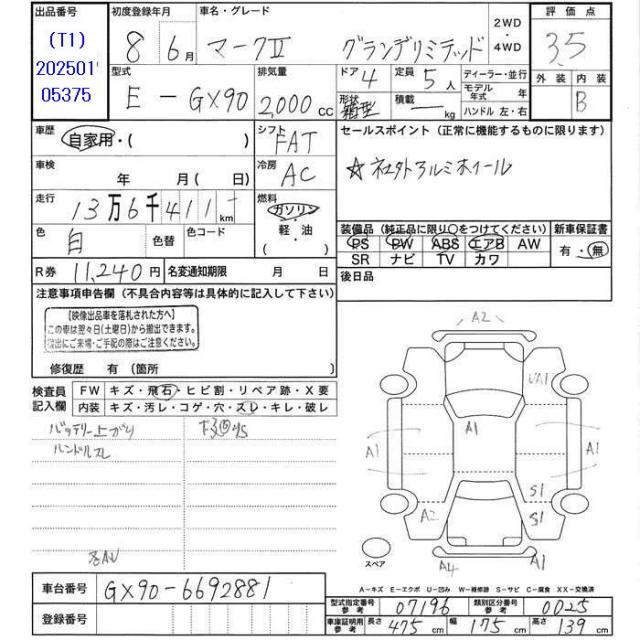 出品番号
(T1)
202501
05375
初度登録年月
8年6月
車名・グレード
マークⅡ グランデリミテッド
2WD
・
4WD
評価点
3.5
外装 内装
B
型式
E-GX90
排気量
2,000cc
ドア
4
形状
箱型
定員
5人
積載
kg
ディーラー・並行
モデル年式 年
ハンドル 左・右
車歴
自家用・( )
シフト
FAT
セールスポイント(正常に機能するものに限ります)
☆社外アルミホイール
車検
年 月( 日)
冷房
AC
走行
13万6千411km
燃料
ガソリン
・
軽・油
( )
色
白
色替
色コード
装備品(純正品に限り○をつけてください)
PS PW ABS エアB AW
SR ナビ TV カワ
新車保証書
有・無
R券 11,240円
名変通知期限 月 日
後日品
注意事項申告欄(不具合内容等は具体的に記入して下さい)
【映像出品車を落札された方へ】
この車は翌々日(土曜日)から搬出できます。
搬出にご来場・ご手配の際はご注意ください。
修復歴: 有(箇所 )
検査員記入欄
FW キズ・飛石・ヒビ割・リペア跡・X要
内装 キズ・汚レ・コゲ・穴・スレ・キレ・破レ
バッテリー上がり
ハンドルスレ
A2
UA1
A1
A1
A1
S1
S1
A2
A4
スペア
A-キズ E-エクボ U-凹み W-補修跡 S-サビ C-腐食 XX-交換済
車台番号
GX90-6692881
登録番号
型式指定番号 参考 07196
類別区分番号 参考 0025
車庫証明用参考 長さ 475cm 幅 175cm 高さ 139cm